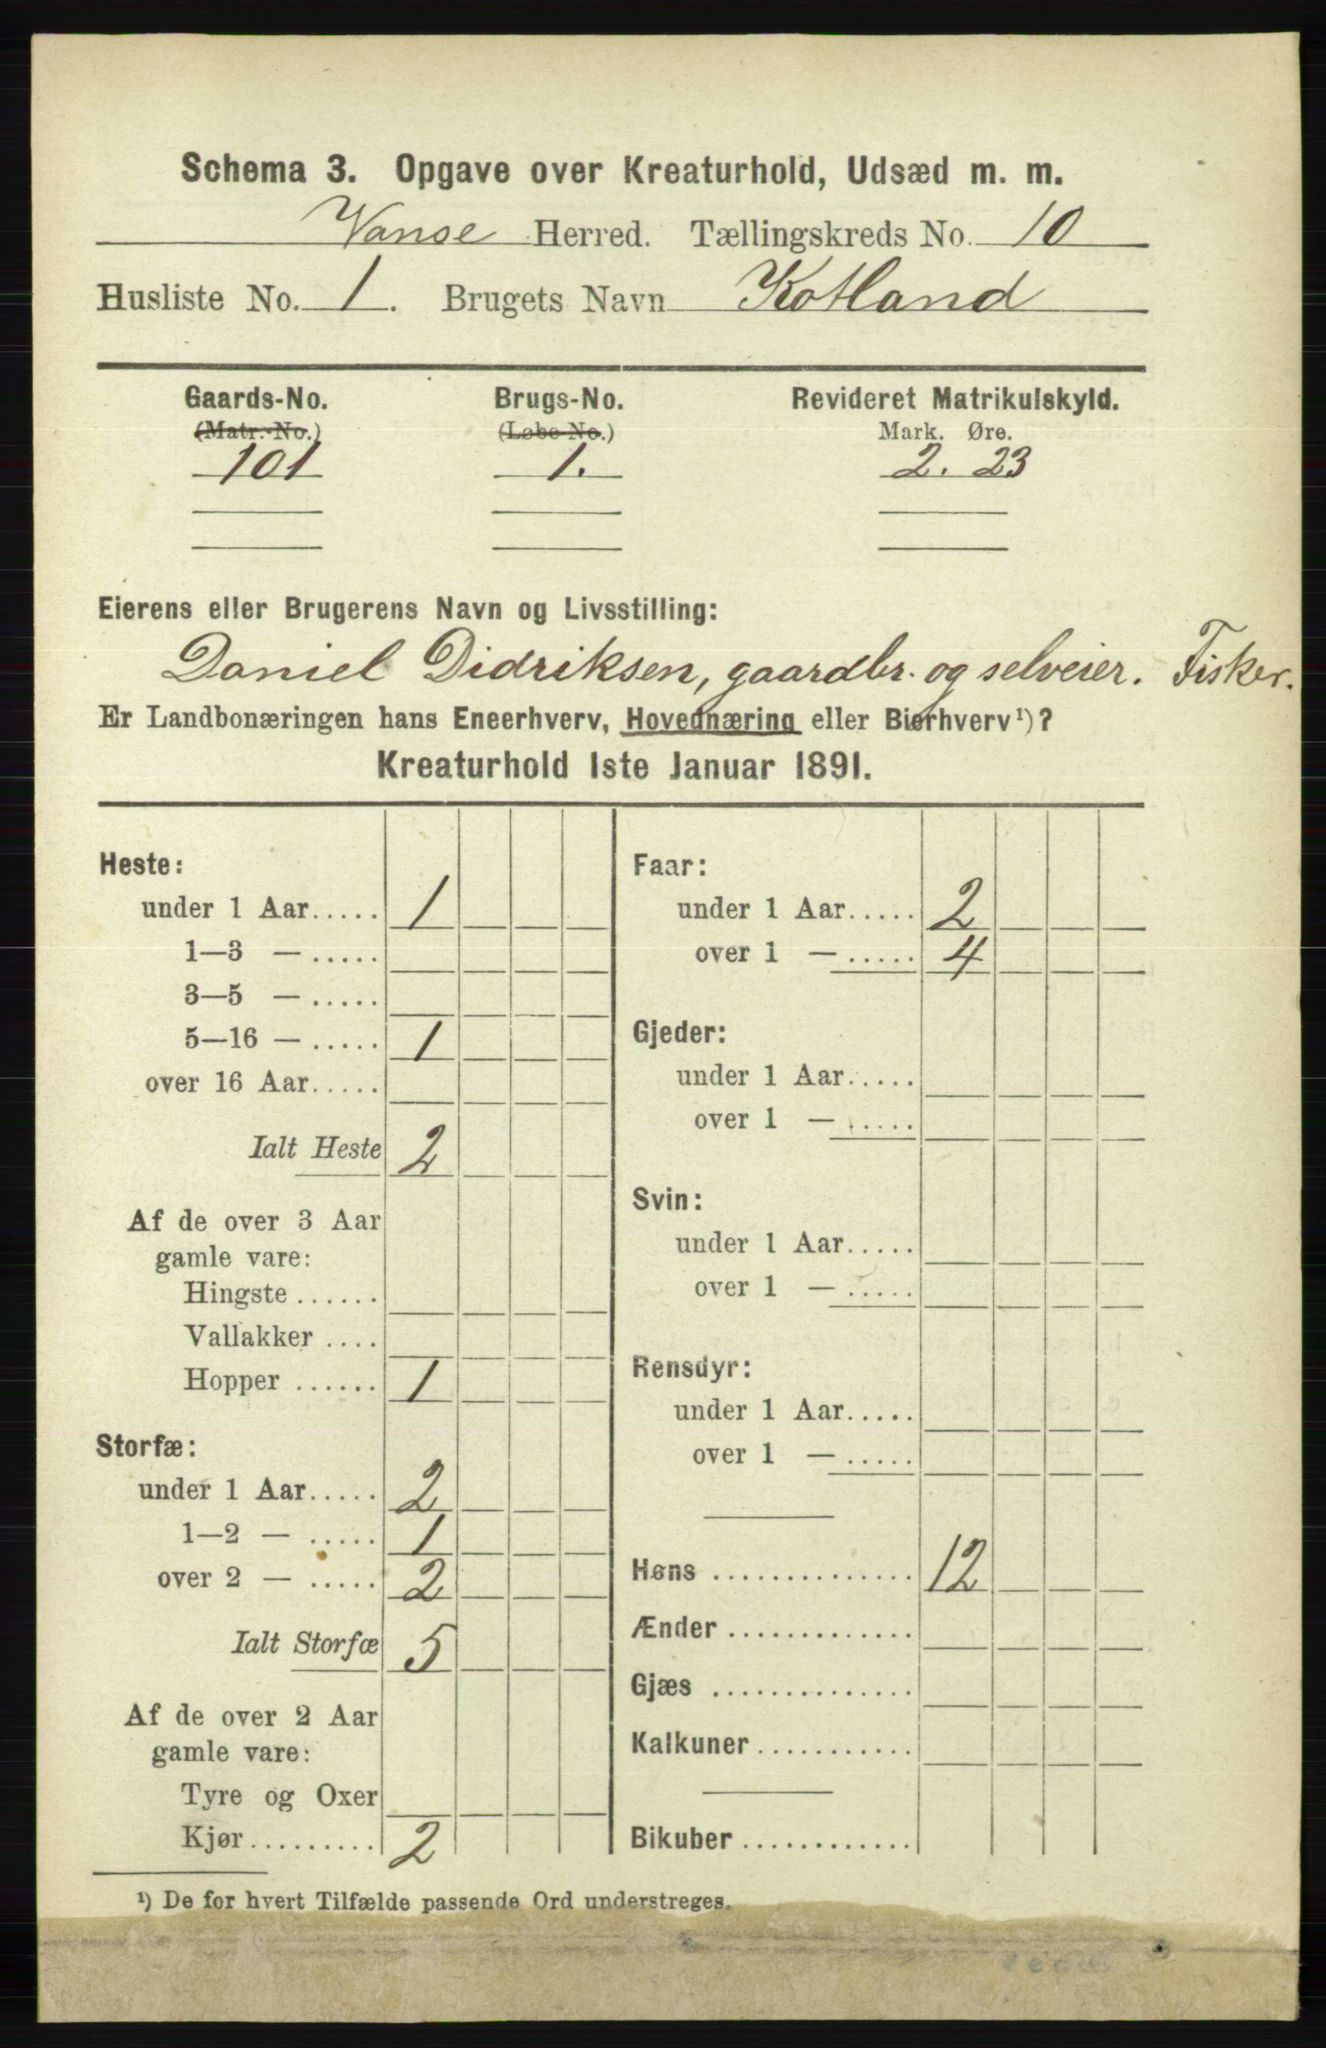 Schema 3. Opgave over Kreaturhold, Udsæd m. m.
Vanse Herred. Tællingskreds No. 10
Husliste No. 1. Brugets Navn Kotland
Gaards-No. Brugs-No. Revideret Matrikulskyld.
(Matr.-No.) (Løbe-No.) Mark. Øre.
101 1. 2. 23
Eierens eller Brugerens Navn og Livsstilling:
Daniel Didriksen, gaardbr. og selveier. Fisker.
Er Landbonæringen hans Eneerhverv, Hovednæring eller Bierhverv¹)?
Kreaturhold 1ste Januar 1891.
Heste:
under 1 Aar..... 1
1—3 — .....
3—5 — .....
5—16 — ..... 1
over 16 Aar.....
Ialt Heste 2
Af de over 3 Aar
gamle vare:
Hingste ......
Vallakker ....
Hopper ...... 1
Storfæ:
under 1 Aar..... 2
1—2 — ..... 1
over 2 — ..... 2
Ialt Storfæ 5
Af de over 2 Aar
gamle vare:
Tyre og Oxer
Kjør.......... 2
Faar:
under 1 Aar..... 2
over 1 — ..... 4
Gjeder:
under 1 Aar.....
over 1 — .....
Svin:
under 1 Aar.....
over 1 — .....
Rensdyr:
under 1 Aar.....
over 1 — .....
Høns .............. 12
Ænder .............
Gjæs ..............
Kalkuner...........
Bikuber ............
¹) De for hvert Tilfælde passende Ord understreges.